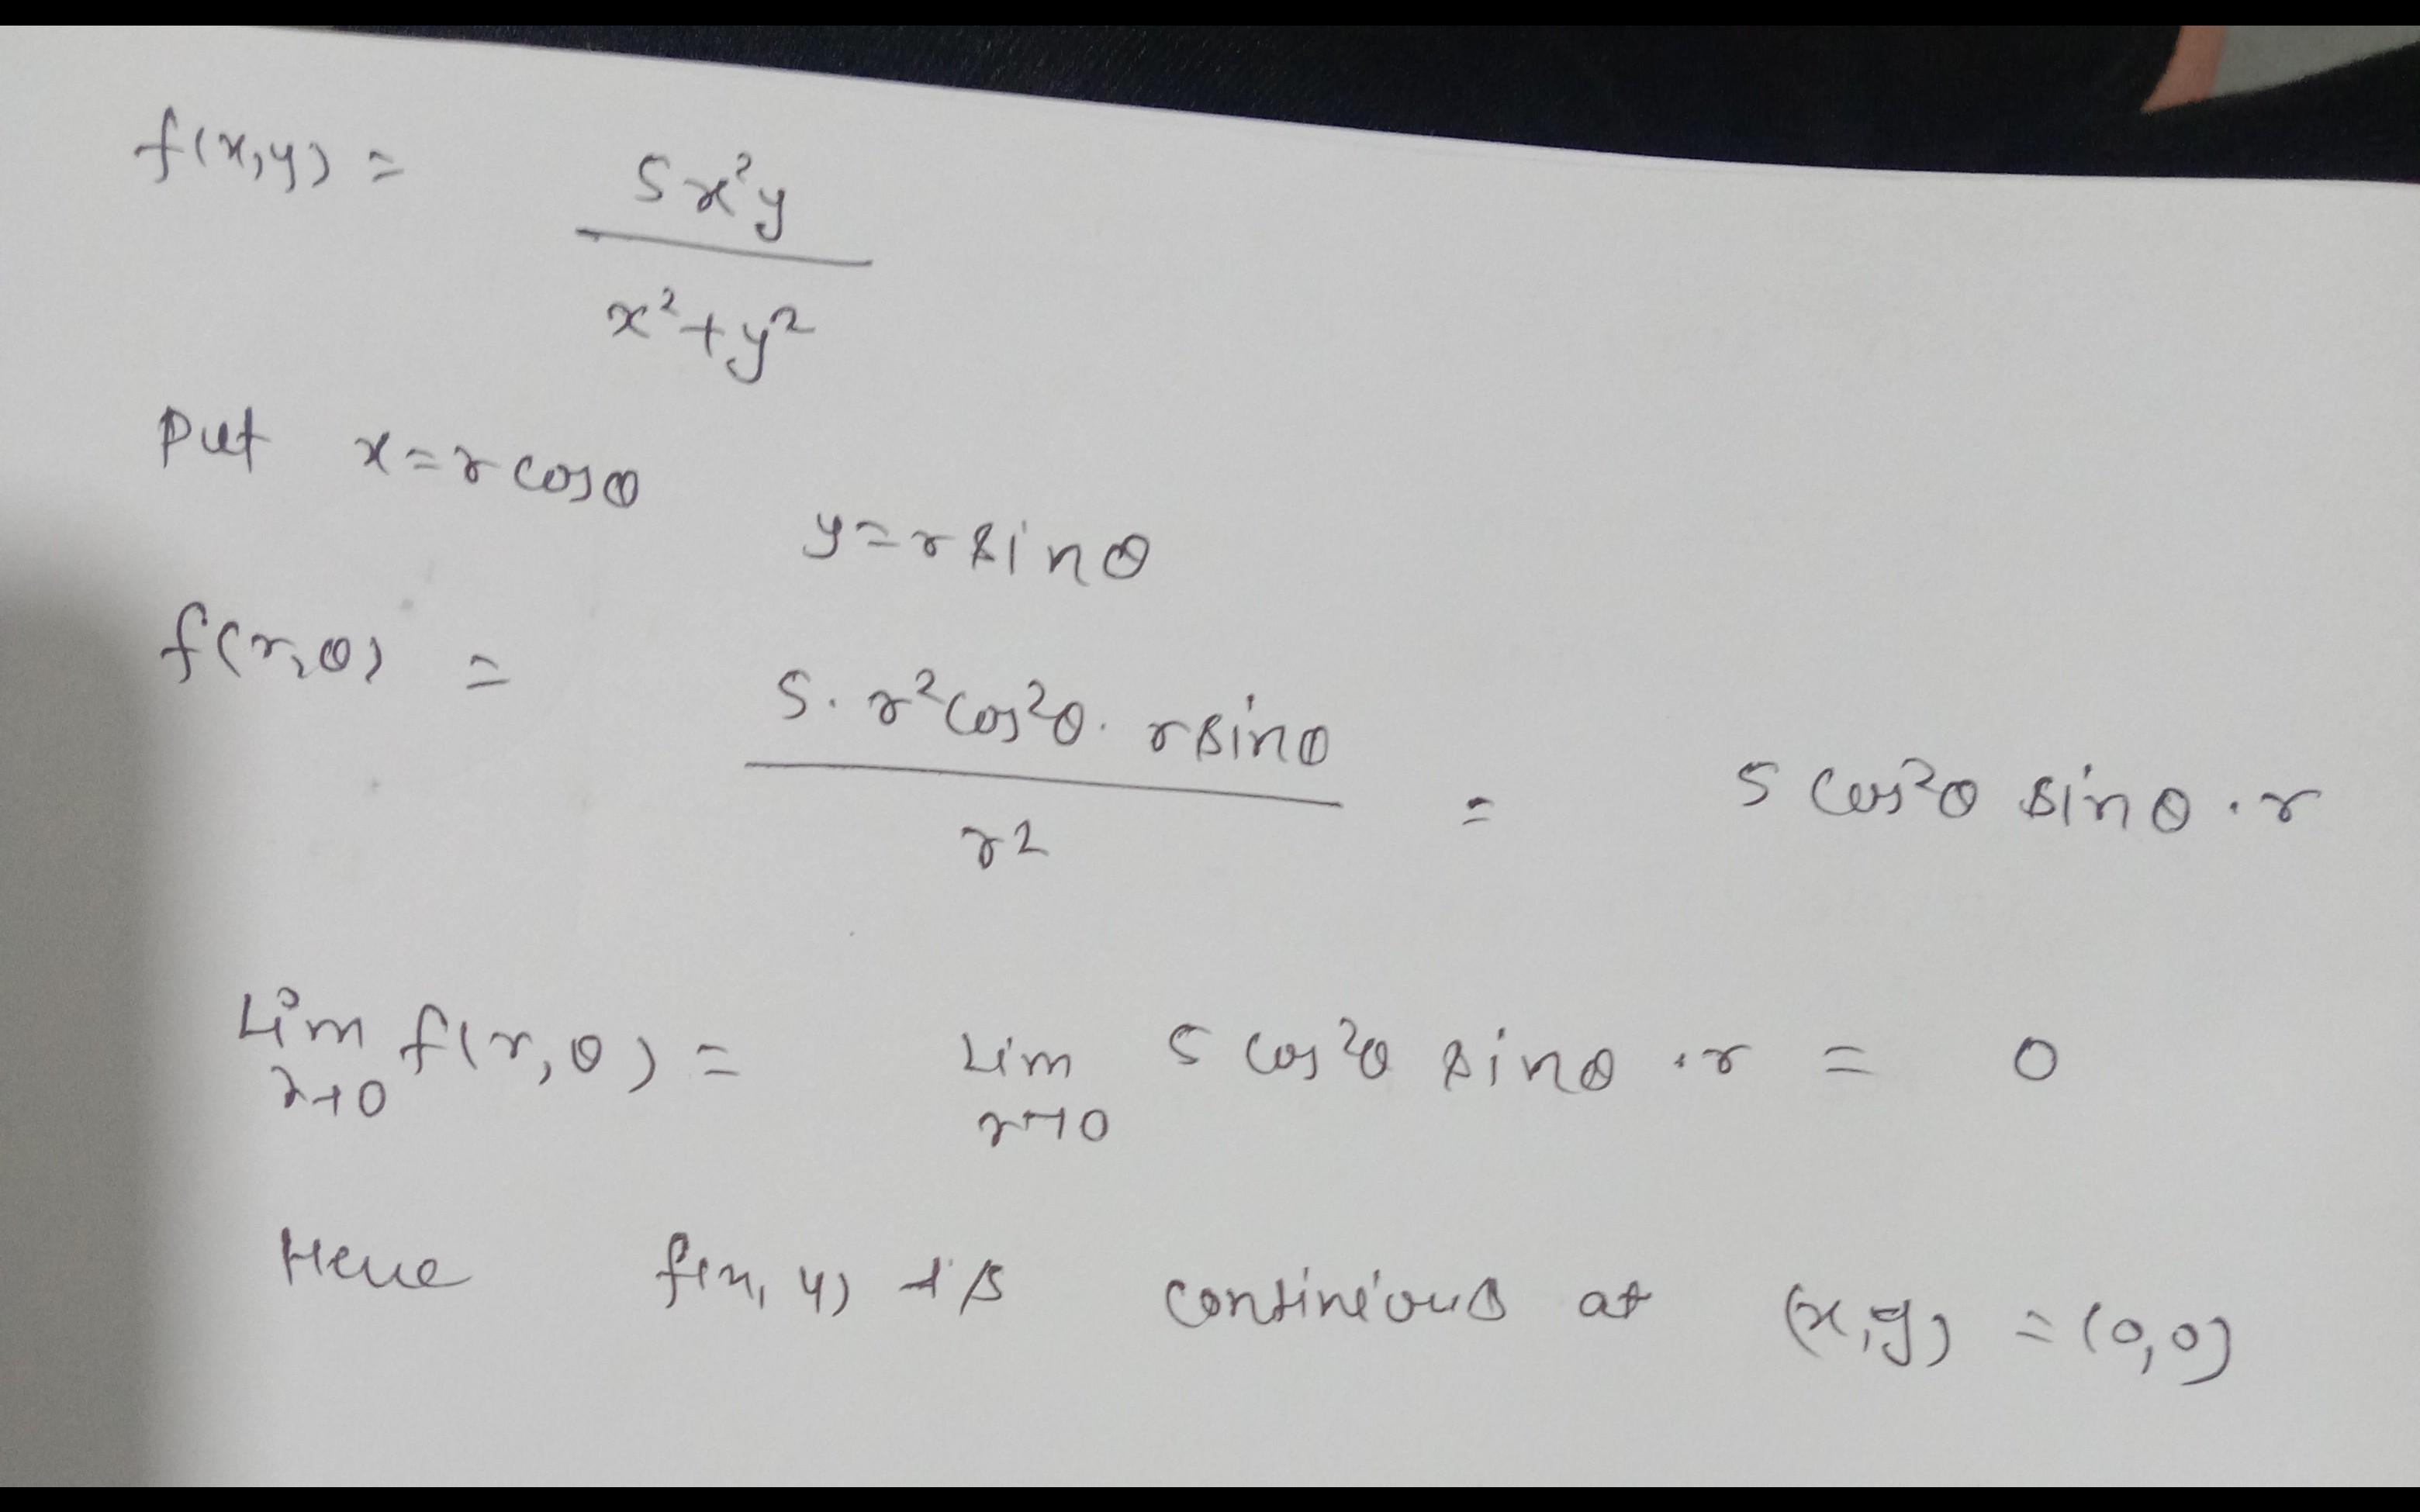 f(x,y) = 5x²y / x²+y²
Put x=r cosθ y=r sinθ
f(r,θ) = 5. r²cos²θ. r sinθ / r² = 5 cos²θ sinθ . r
Lim r→0 f(r,θ) = Lim r→0 5 cos²θ sinθ . r = 0
Hence f(x,y) is continious at (x,y) = (0,0)